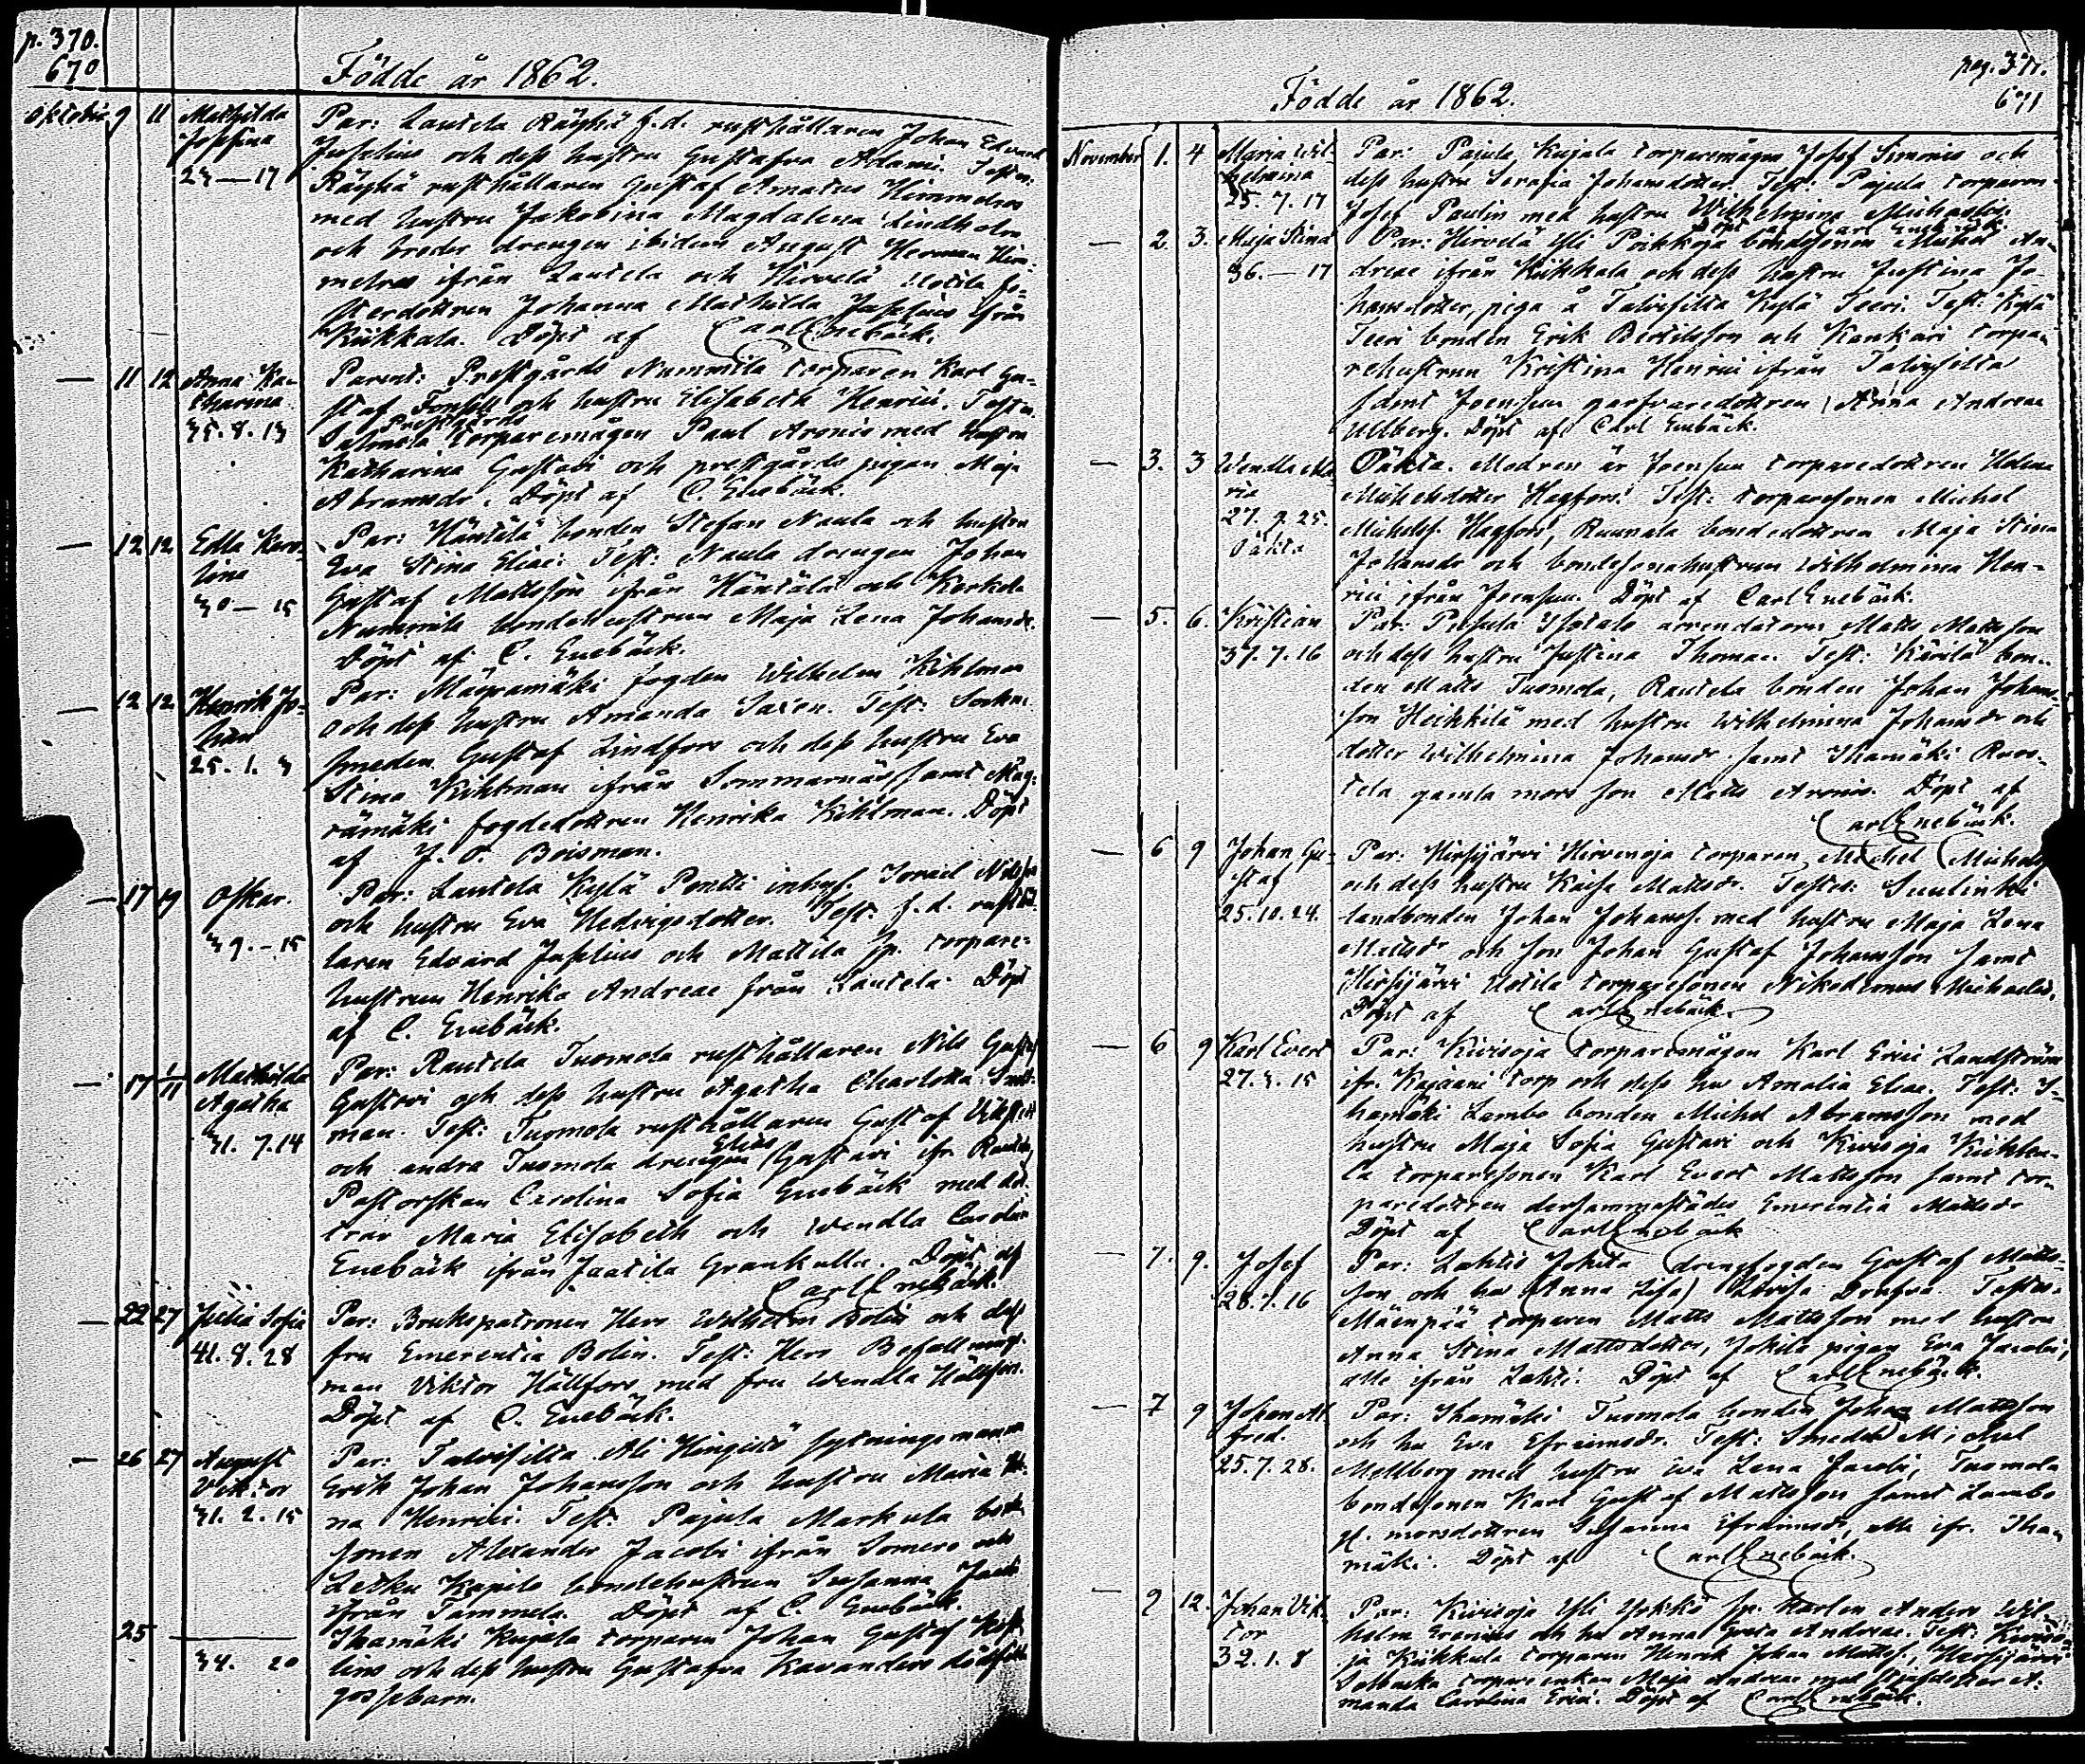 p. 370.
670
Födde år 1862.
Oktober 9 11 Mathilda
Josefina
23—17
Par: Lautela Räyhä f.d. rusthållaren Johan Edvard
Juselius och dess hustru Gustafva Adami. Testes:
Räyhä rusthållaren Gustaf Amatus Himmelroos
med hustru Jakobina Magdalena Lindholm
och broder drengen ibidem August Herman Him-
melroos ifrån Lautela och Hirvelä Uotila fo-
sterdottren Johanna Mathilda Juselius ifrån
Kiikkala. Döpt af Carl Enebäck.
— 11 12 Anna Ka-
tharina
35. 8. 13
Parent: Prestgårds Nummila torparen Karl Gu-
staf Fonsell och hustru Elisabeth Henrici. Testes:
Prestgårds
torparemågen Paul Aronis med hustru
Katharina Gustavi och prestgårds pigan Maja
Abramsdr. Döpt af C. Enebäck.
— 12 12 Edla Karo-
lina
30—15
Par: Häntälä bonden Stefan Naula och hustru
Eva Stina Eliae: Test: Naula drengen Johan
Gustaf Mattsson ifrån Häntälä och Kerkola
Nummila bondehustrun Maja Lena Johansdr.
Döpt af C. Enebäck.
— 12 12 Henrik Jo-
han
25. 1. 3
Par: Mäyrämäki fogden Wilhelm Kihlman
och dess hustru Amanda Saxen. Test: Sockne
smeden Gustaf Lindfors och dess hustru Eva
Stina Kihlman ifrån Sommarnäs samt Mäy-
rämäki fogdedottren Henrika Kihlman. Döpt
af J. O. Boisman.
— 17 19 Oskar.
39.—15
Par: Lautela Kylä Pentti inhys. Israel Nilsson
och hustru Eva Hedvigsdotter. Test: f.d. rusthål-
laren Edvard Juselius och Mattila sp. torpare-
hustrun Henrika Andreae från Lautela. Döpt
af C. Enebäck.
— 17 1/11 Mathilda
Agatha
31. 7. 14
Par: Rautela Tuomola rusthållaren Nils Gustaf
Gustavi och dess hustru Agatha Charlotta
man. Test: Tuomola rusthållaren Gustaf
Elias
och andra Tuomola drengen Gustavi ifr. Rautela,
Pastorskan Carolina Sofia Enebäck med döt-
trar Maria Elisabeth och Wendla Carolina
Enebäck ifrån Jaatila Grankulla. Döpt af
Carl Enebäck.
— 22 27 Julia Sofia
41. 8. 28
Par: Brukspatronen Herr Wilhelm Bolin och dess
fru Emerentia Bolin. Test: Herr Befallnings-
man Viktor Hällfors med fru Wendla Hällfors.
Döpt af C. Enebäck.
— 26 27 August
Viktor
31. 2. 15
Par: Talvisilta Ali Hingitö sytningsmannen
Erik Johan Johansson och hustru Maria He-
na Henrici. Test: Pajula Markula bonde-
sonen Alexander Jacobi ifrån Somero och
Letku Kapilo bondehustrun Susanna Jacobi
ifrån Tammela. Döpt af C. Enebäck.
25 —
34. 20
Ihamäki Kujala torparen Johan Gustaf
lins och dess hustru Gustafva Kavanders dödfödda
gossebarn.
pag. 371.
671
Födde år 1862.
November 1. 4 Maria Wil-
helmina
25. 7. 17
Par: Pajula Kujala torparemågen Josef Simonis och
dess hustru Serafia Johansdotter. Test: Pajula torparen
Josef Paulin med hustru Wilhelmina Michaelis.
Döpt af Carl Enebäck.
— 2 3. Maja Stina
36.—17
Par: Hirvelä Yli Poikkoja bondesonen Michel An-
dreae ifrån Kiikkala och dess hustru Justina Jo-
hansdotter, piga å Talvisilta Kylä Teeri. Test: Kylä
Teeri bonden Erik Bertilsson och Kankari torpa-
rehustrun Kristina Henrici ifrån Talvisilta
samt Joensuu garfvaredottren Anna Andreae
Ullberg. Döpt af Carl Enebäck.
— 3. 3 Wendla Ma-
ria
27. 9. 25.
Oäkta
Oäkta. Modren är Joensuu torparedottren Helena
Michelsdotter Hagfors. Test: torparesonen Michel
Michelss. Hagfors, Ruunala bondedottren Maja Stina
Johansdr och bondesonahustrun Wilhelmina Hen-
rici ifrån Joensuu. Döpt af Carl Enebäck.
— 5. 6. Kristian
37. 7. 16
Par: Pusula Isotalo arrendatorn Matts Mattsson
och dess hustru Justina Thomae. Test: Kärilä bon-
den Matts Tuomola, Rautela bonden Johan Johans-
son Heikkilä med hustru Wilhelmina Johansdr och
dotter Wilhelmina Johansdr samt Ihamäki Ruos-
tela gamla mors son Matts Aronis. Döpt af
Carl Enebäck.
— 6 9 Johan Gu-
staf
25. 10. 24.
Par: Hirsijärvi Hirvenoja torparen Michel Michelss.
och dess hustru Kaisa Mattsdr. Testes: Suulinki
landbonden Johan Johanss. med hustru Maja Lena
Mattsdr och son Johan Gustaf Johansson samt
Hirsijärvi Uotila torparesonen Nikodemus Michaelis.
Döpt af Carl Enebäck.
— 6 9 Karl Evert
27. 3. 15
Par: Kivisoja torparemågen Karl Erici Landström
ifr. Kajaani torp och dess hu Amalia Eliae. Test: I-
hamäki Lambo bonden Michel Abramsson med
hustru Maja Sofia Gustavi och Kivisoja Kiikka-
la torparesonen Karl Evert Mattsson samt tor-
paredottren dersammastädes Emerentia Mattsdr
Döpt af Carl Enebäck
— 7. 9. Josef
28. 7. 16
Par: Lahti Jokila drengfogden Gustaf Matts-
son och hu (Anna Lisa) Lovisa. Testes:
Mäenpää torparen Matts Mattsson med hustru
Anna Stina Mattsdotter, Jokila pigan Eva Jacobi,
alle ifrån Lahti. Döpt af Carl Enebäck.
— 7 9 Johan Al-
fred.
25. 7. 28.
Par: Ihamäki Tuomola bonden Johan Mattsson
och hu Eva Efraimsdr. Test: Smeden Michel
Mellberg med hustru Eva Lena Jacobi, Tuomola
bondesonen Karl Gustaf Mattsson samt Lambo
gl. morsdottren Susanna Efraimsdr, alla ifr. Iha-
mäki. Döpt af Carl Enebäck.
— 9 12. Johan Vik-
tor
32. 1. 8
Par: Kivisoja Yli Yrkkö sp. karlen Anders Wil-
helm Grenius och hu Anna Greta Andreae. Test: Kiviso-
ja Kiikkala torparen Henrik Johan Mattss., Hirsijärvi
Salbacka torpareenkan Maja Andreae med dotter A-
manda Carolina Erici. Döpt af Carl Enebäck.